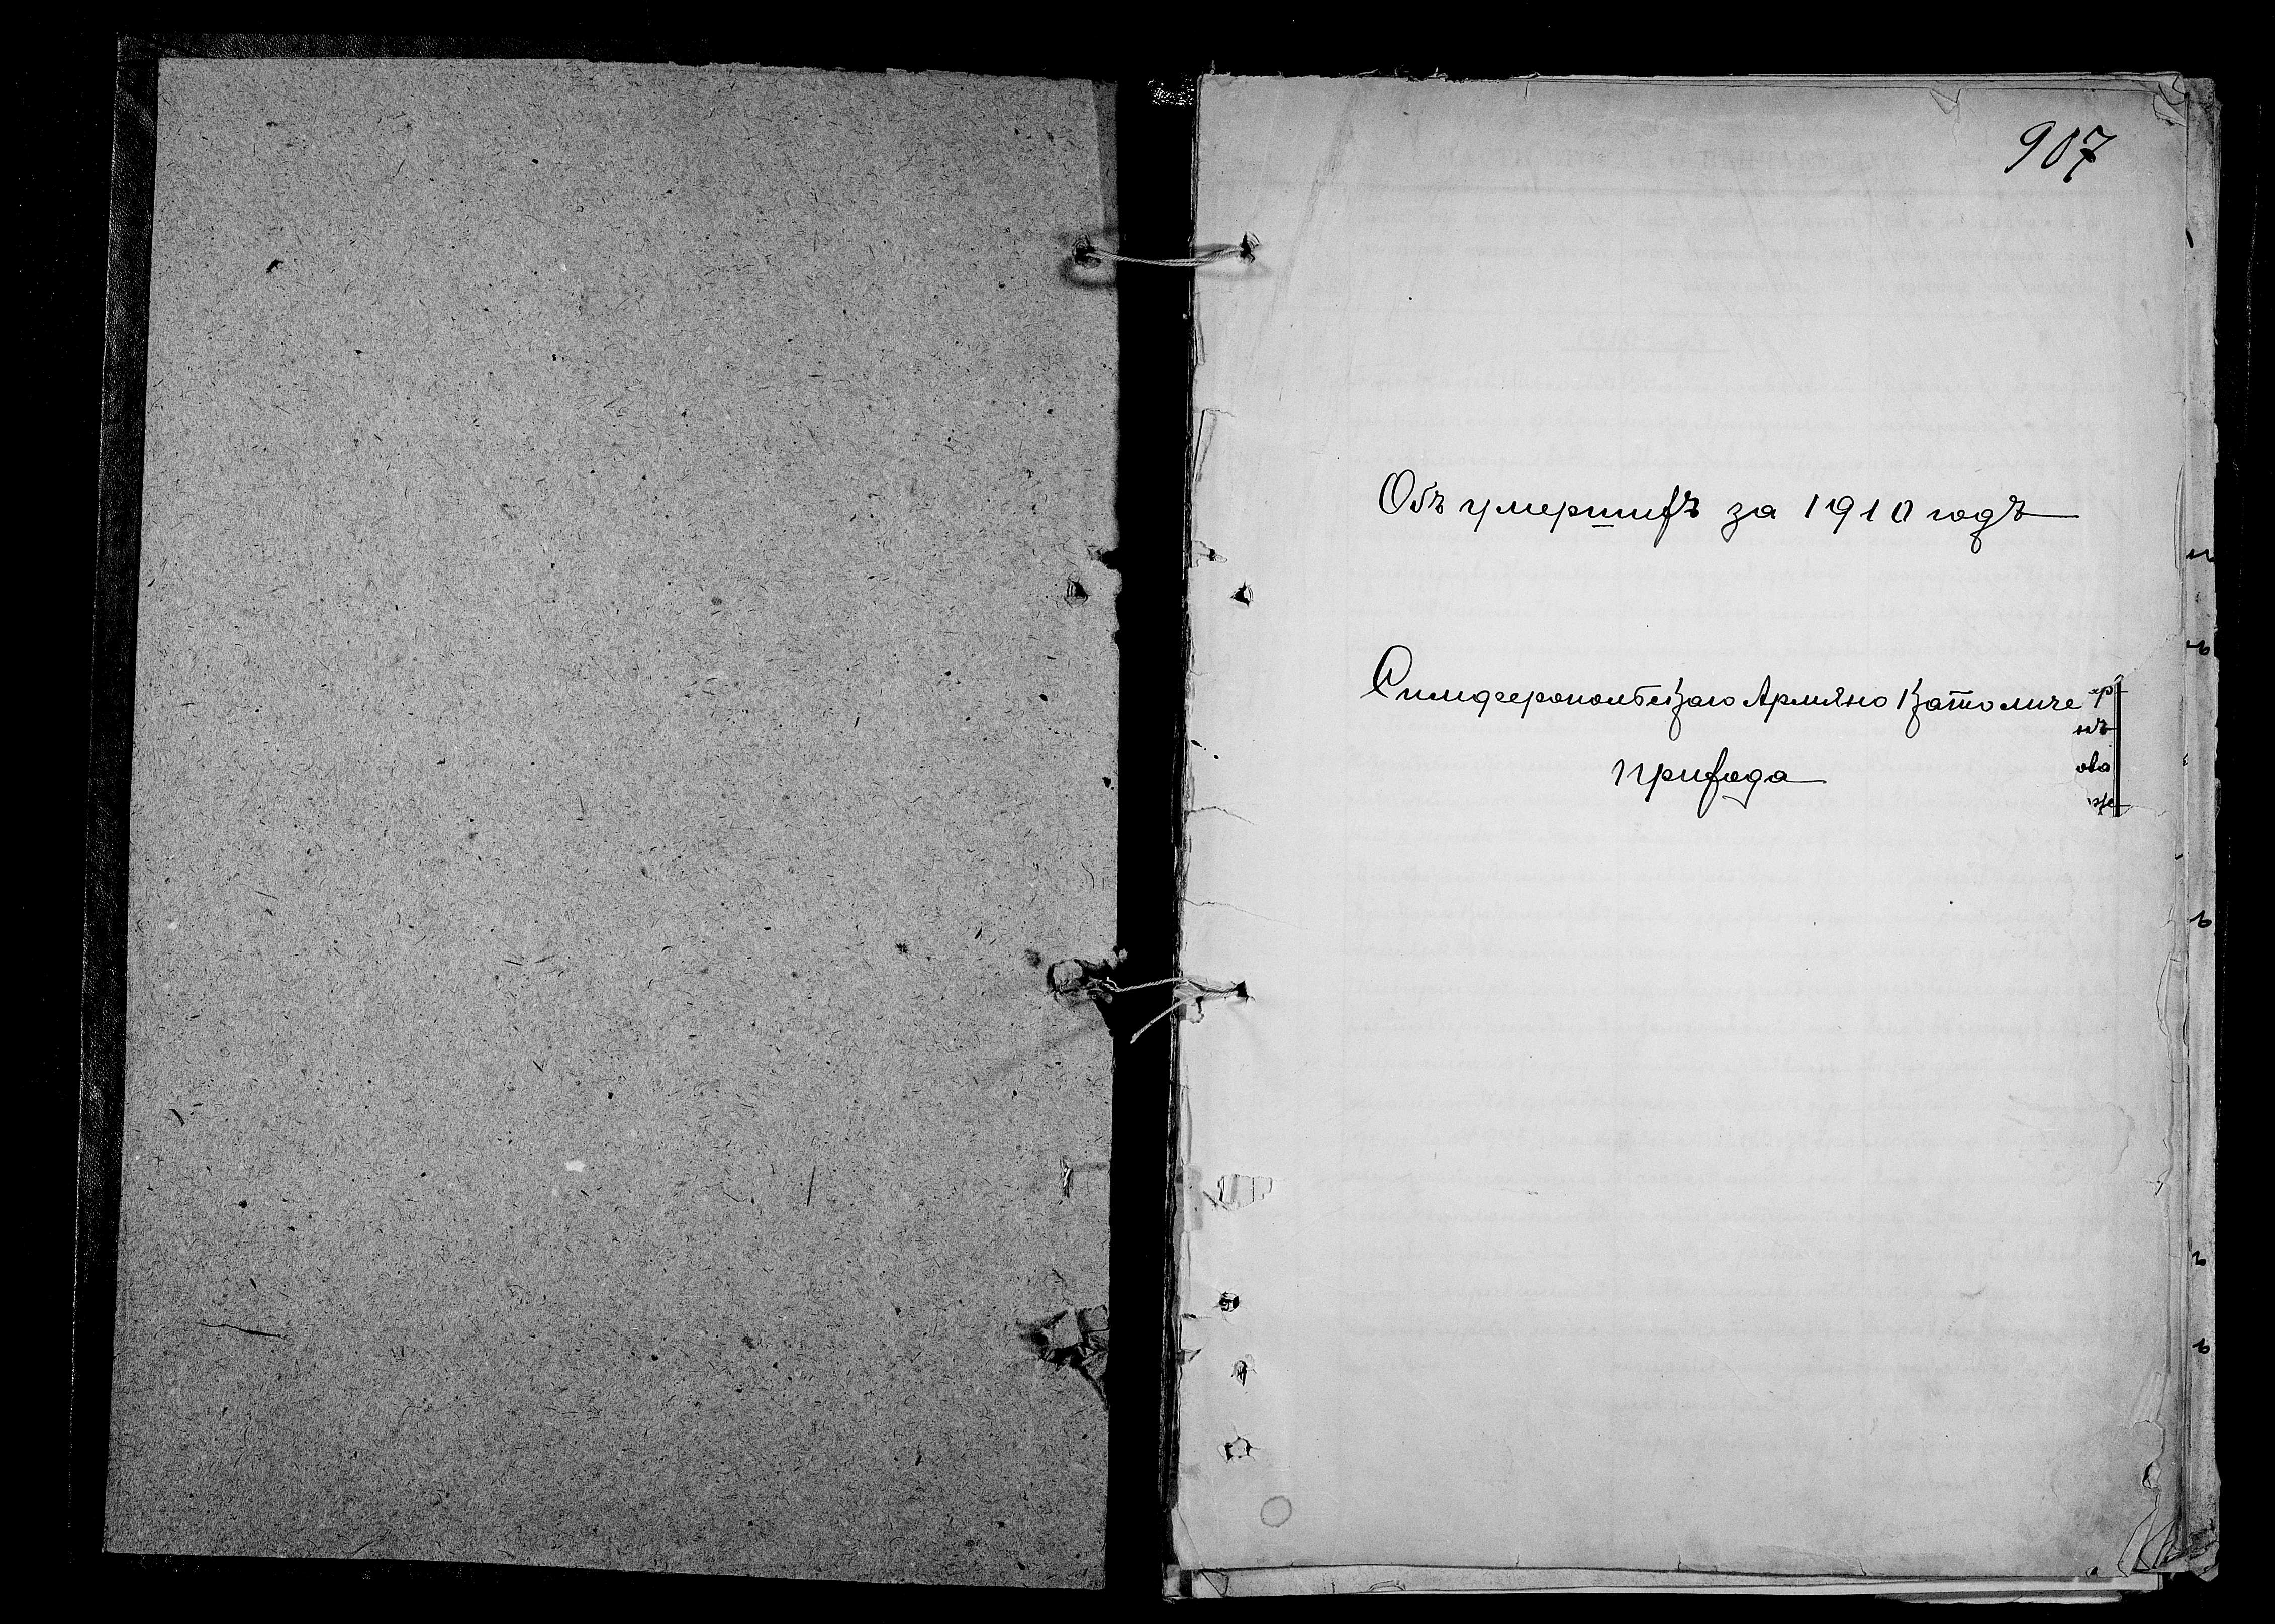 907
Объ умершихъ за 1910 годъ
Симферопольскаго Армяно Католиче
прихода